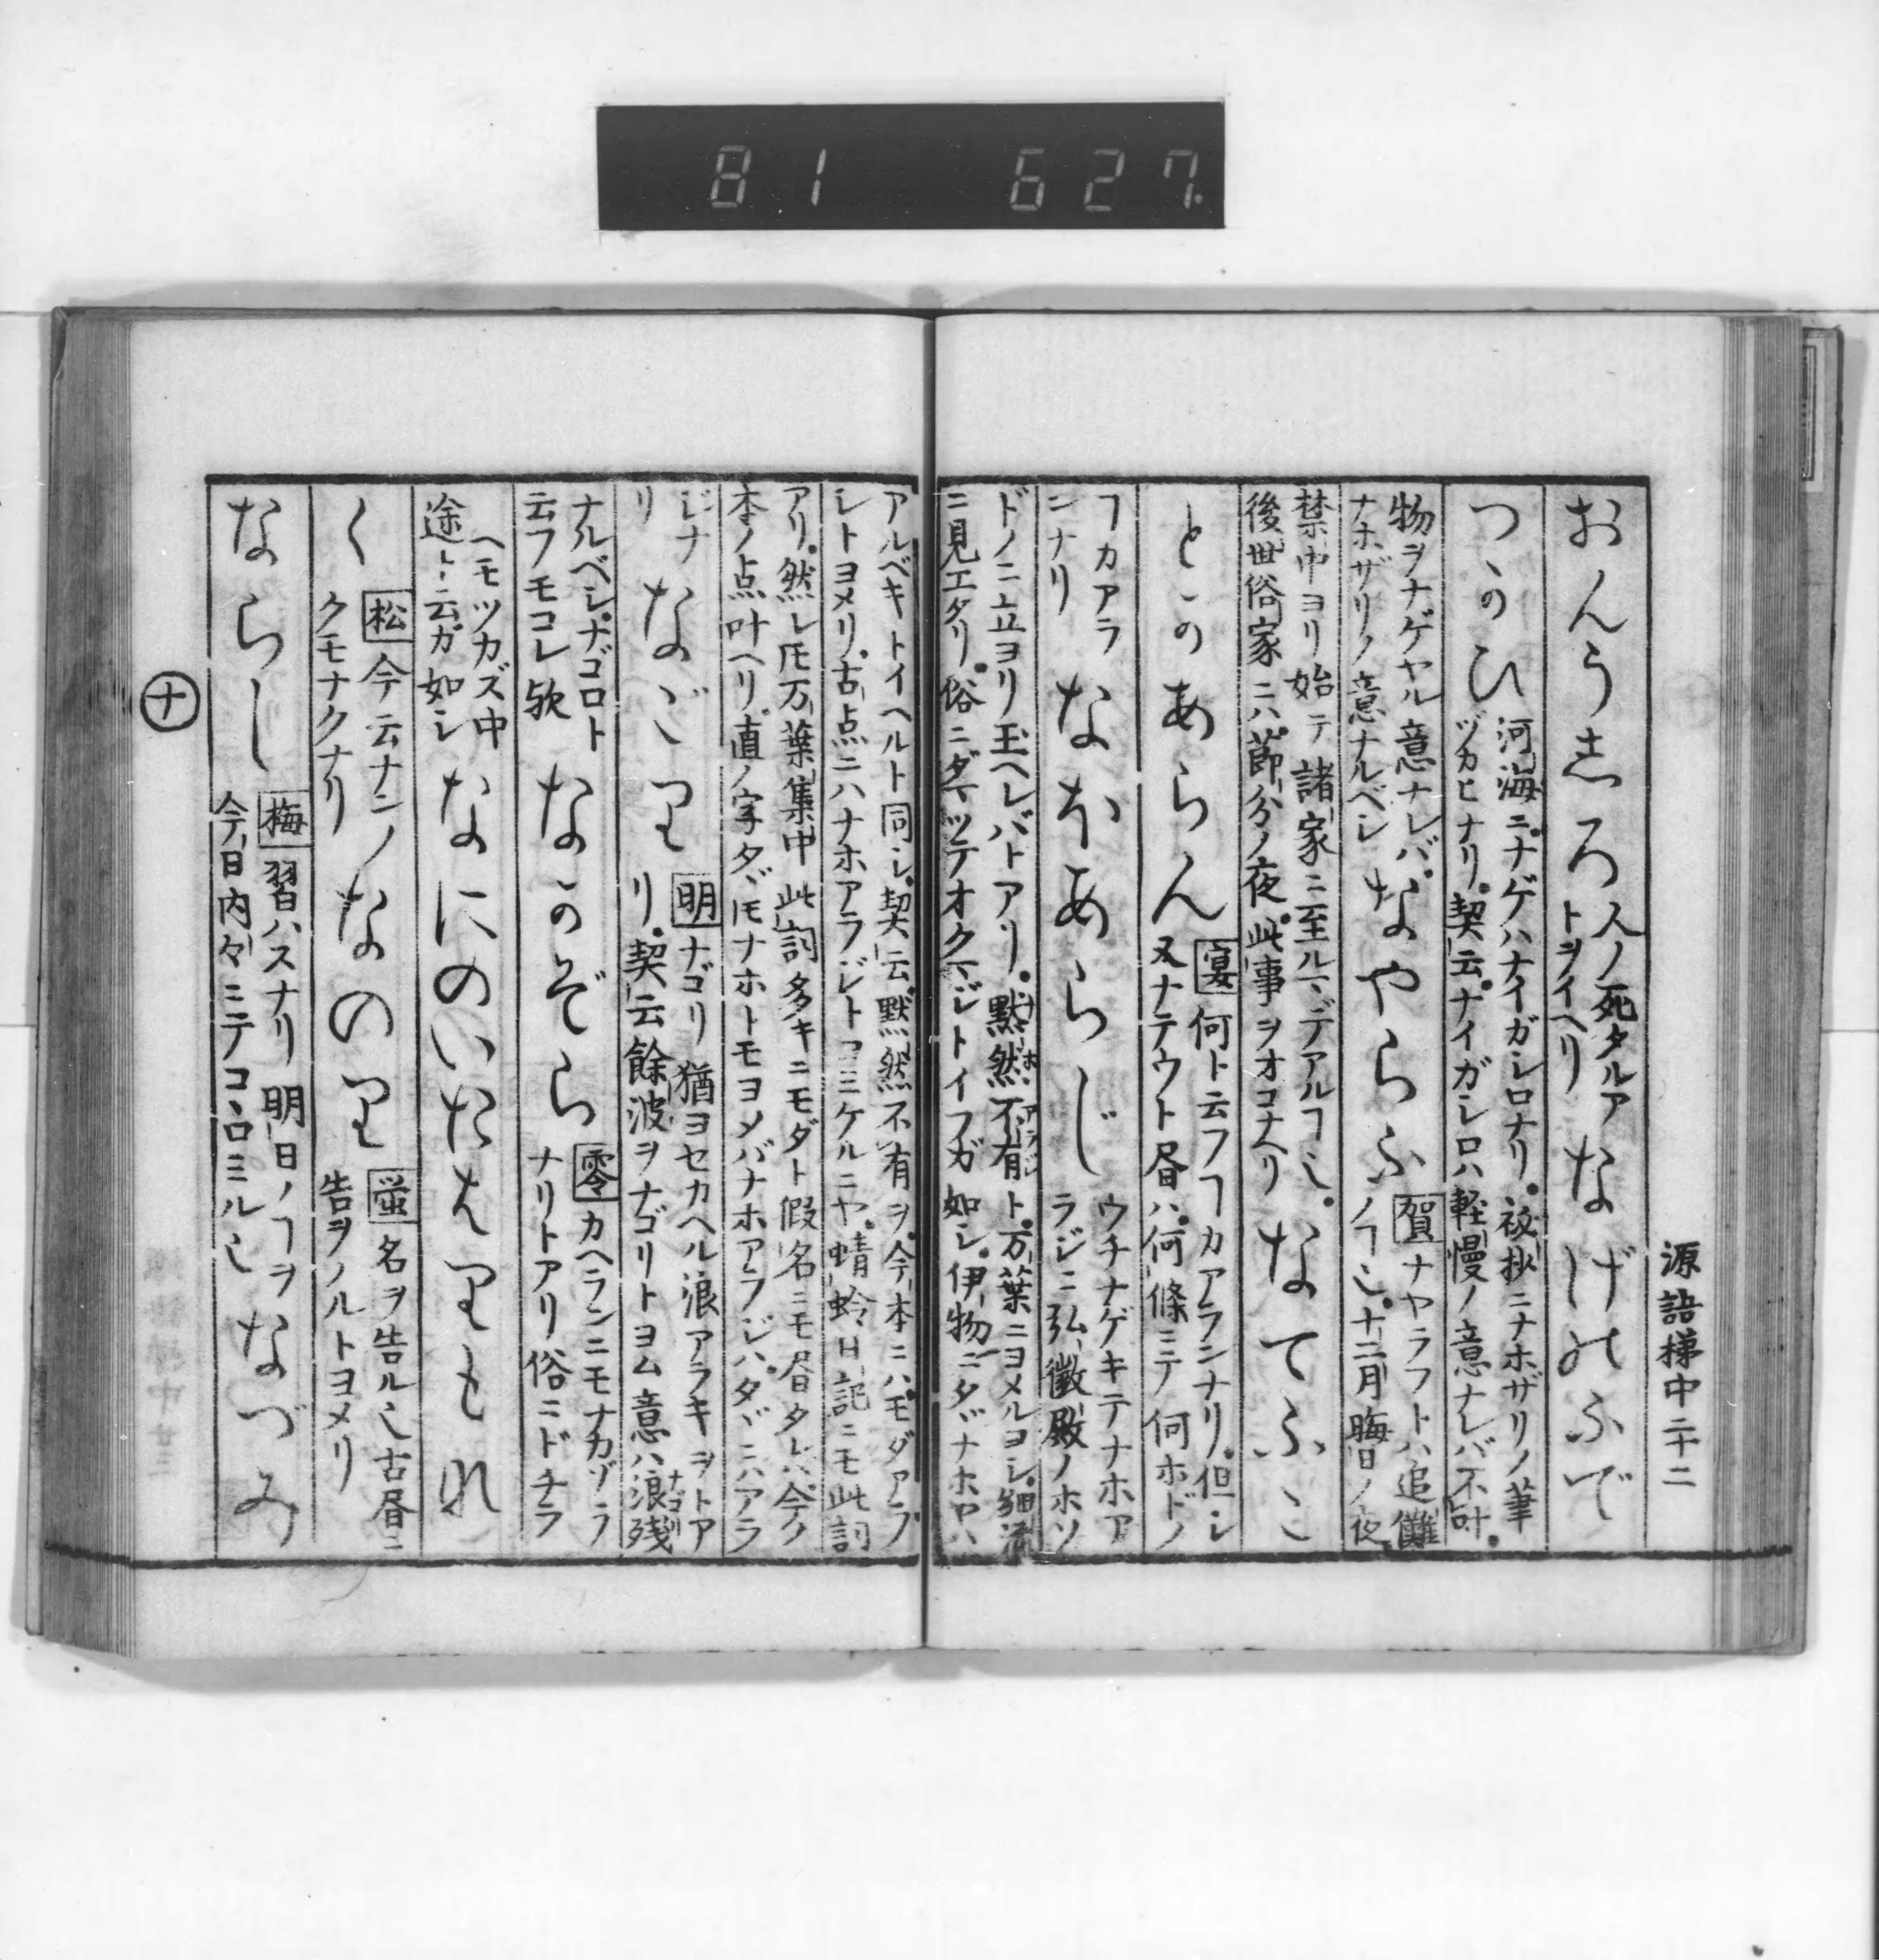 81 627
源語梯中二十二
おんうしろ 人ノ死タルア
トヲイヘリ なげのふで
つゝかひ 河海ニナゲハナイガシロナリ秘抄ニナホザリノ筆
ヅカヒナリ契云ナイガシロハ軽慢ノ意ナレバ不叶
物ヲナゲヤル意ナレバ
ナホザリノ意ナルベシ なやらふ 賀ナヤラフトハ追儺
ノヿ也十二月晦日ノ夜
禁中ヨリ始テ諸家ニ至ルマデアルヿ也
後世俗家ニハ節分ノ夜此事ヲオコナヘリ なてふこ
とかあらん 宴何ト云フヿカアランナリ但シ
又ナテウト昏ハ何條ニテ何ホドノ
ヿカアラ
ンナリ なほあらじ ウチナゲキテナホア
ラジニ弘徽殿ノホソ
ドノニ立ヨリ玉ヘレバトアリ黙然不有ト万葉ニヨメルヨシ細流
ニ見エタリ俗ニダマツテオクマジトイフガ如シ伊物ニタヾナホヤハ
アルベキトイヘルト同シ契云黙然不有ヲ今本ニハモダアラ
シトヨメリ古点ニハナホアラジトヨミケルニヤ蜻蛉日記ニモ此詞
アリ然レ𪜈万葉集中此詞多キニモダト假名ニモ昏タレハ今ノ
本ノ点叶ヘリ直ノ字タヾ𪜈ナホトモヨメバナホアラジハタヾニハアラ
ジナ
リ なごり 明ナゴリ猶ヨセカヘル浪アラキヲトア
リ契云餘波ヲナゴリトヨム意ハ浪残
ナルベシナゴロト
云フモコレ歟 なかぞら 零カヘランニモナカゾラ
ナリトアリ俗ニドチラ
ヘモツカズ中
途ト云ガ如シ なにのいたはりもれ
く 松今云ナンノ
クモナクナリ なのり 蛍名ヲ告ル也古昏ニ
告ヲノルトヨメリ
ならし 梅習ハスナリ明日ノヿヲ
今日内々ニテコヽロミル也 なづみ
十